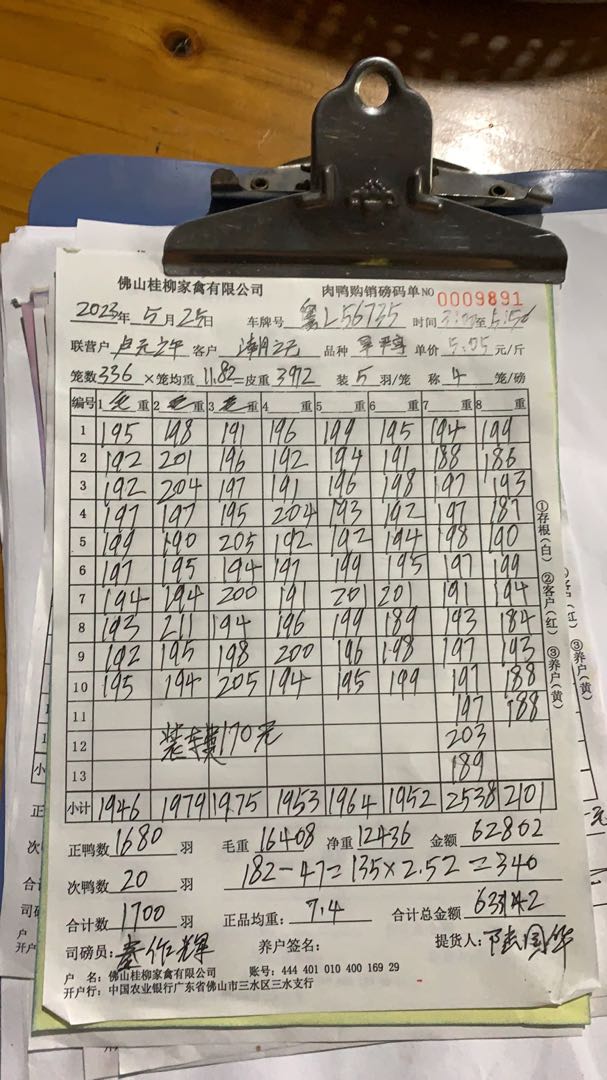 佛山桂柳家禽有限公司 肉鸭购销磅码单 NO 0009891
2023年 5月 25日 车牌号 粤L56735 时间 至
联营户 客户 品种 单价 5.05 元/斤
笼数 336 ×笼均重 11.82 =皮重 3972 装 5 羽/笼 称 4 笼/磅
编号 1 重 2 重 3 重 4 重 5 重 6 重 7 重 8 重
1 195 198 191 196 199 195 194 199
2 192 201 196 192 194 191 188 186
3 192 204 197 191 196 198 197 193
4 197 197 195 204 193 192 197 187
5 199 190 205 192 192 194 198 190
6 197 195 194 197 199 195 197 199
7 194 194 200 191 201 201 191 194
8 193 211 194 196 199 189 193 184
9 192 195 198 200 196 198 197 193
10 195 194 205 194 95 199 197 188
11 197 188
12 装车费170元 203
13 189
小计 1946 1979 1975 1953 1964 1952 2538 2101
正鸭数 1680 羽 毛重 16408 净重 12436 金额 62802
次鸭数 20 羽 182-47=135×2.52=340
合计数 1700 羽 正品均重: 7.4 合计总金额 63142
司磅员: 秦作辉 养户签名: 提货人: 陆国华
户 名: 佛山桂柳家禽有限公司 账号: 444 401 010 400 169 29
开户行: 中国农业银行广东省佛山市三水区三水支行
①存根(白) ②客户(红) ③养户(黄)
③养户(黄)